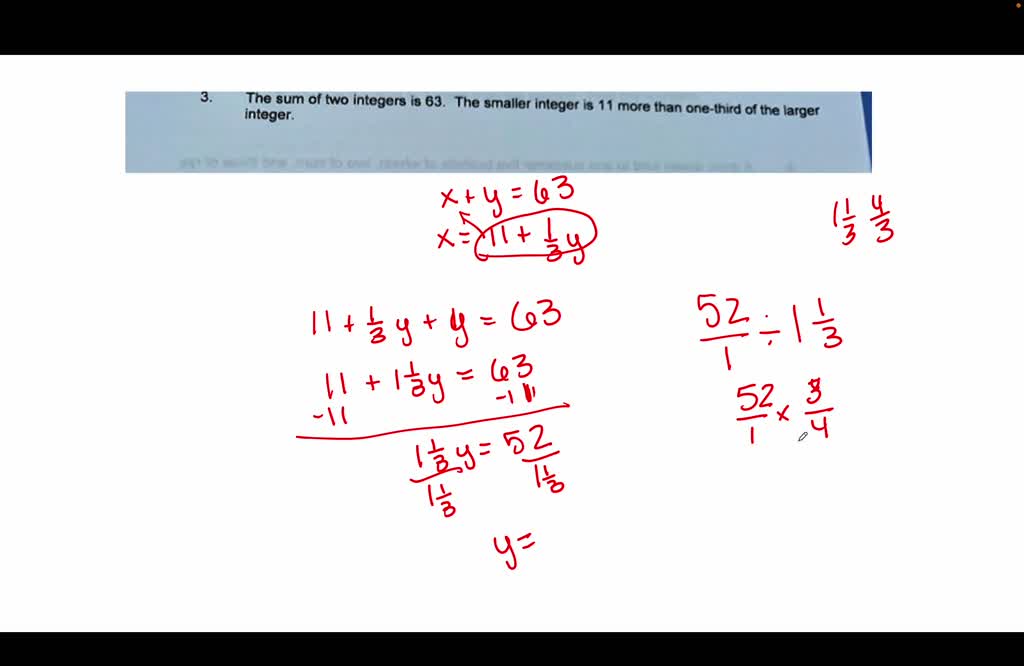 3. The sum of two integers is 63. The smaller integer is 11 more than one-third of the larger
integer.
x + y = 63
x = 11 + 1/3 y
1 1/3 4/3
11 + 1/3 y + y = 63
11 + 1 1/3 y = 63
-11 -11
1 1/3 y = 52
1 1/3 1 1/3
y =
52/1 ÷ 1 1/3
52/1 x 3/4